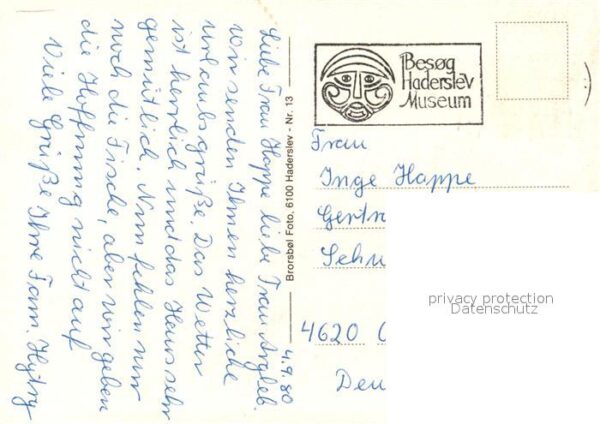 Liebe Frau Happe liebe Frau
Wir senden Ihnen herzliche
Urlaubsgrüße. Das Wetter
ist herrlich und das Haus sehr
gemütlich. Nun fehlen nur
noch die Fische, aber wir geben
die Hoffnung nicht auf
Viele Grüße Ihre Fam.
4.9.80
Brorsbøl Foto, 6100 Haderslev - Nr. 13
Besøg
Haderslev
Museum
Frau
Inge Happe
Gertr
Schu
4620 C
Deu
privacy protection
Datenschutz